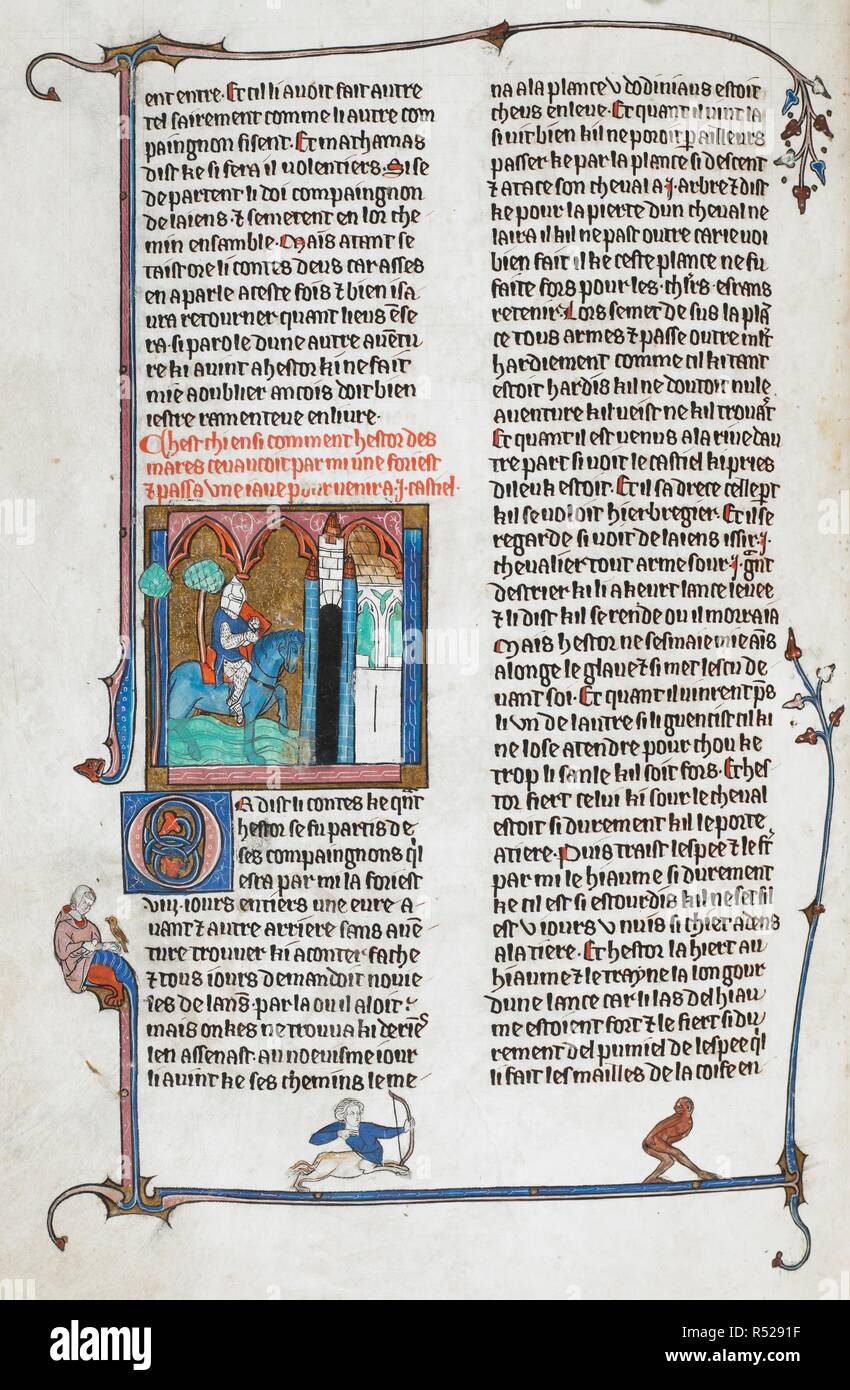 ent entre. Et cil li auoit fait autre
tel sairement comme li autre com
paingnon fisent. Et mathamas
dist ke si fera il uolentiers. Si se
departent li doi compaingnon
de laiens. ⁊ se metent en lor che
min ensamble. Mais atant se
taist ore li contes deus car asses
en a parle a ceste fois ⁊ bien i sa
ura retourner quant lieus e se
ra. si parole dune autre auētu
re ki auint a hestor ki ne fait
mie a oublier ancois doit bien
iestre ramenteue en liure.
Chest chi ensi comment hestor des
mares ceuaucoit par mi une foriest
⁊ passa vne iaue pour uenir a .j. castiel.
OR dist li contes ke qn̄t
hestor se fu partis de
ses compaingnons ql̓
esra par mi la foriest
viij. iours entiers une eure a
uant ⁊ autre arriere sans auē
ture trouuer ki a conter fache
⁊ tous iours demandoit nouie
les de lanꝭ. par la ou il aloit.
mais onkes ne trouua ki
len assenast. au noeuisme iour
li auint ke ses chemins le me
na a la plance v dodiniaus estoit
cheus en leue. Et quant il uint la
si uit bien kil ne pooit ꝑ ailleurs
passer ke par la plance si descent
⁊ atace son cheual a .j. arbre ⁊ dist
ke pour la pierte dun cheual ne
laira il kil ne past outre car ie uoi
bien fait il ke ceste plance ne fu
faite fors pour les chl̓rs. esrans
retenir. Lors se met de sus la plā
ce tous armes ⁊ passe outre ml̓t
hardiement comme cil ki tant
estoit hardis kil ne doutoit nule
auenture kil ueist ne kil trouast
Et quant il est uenus a la riue dau
tre part si uoit le castiel ki pries
dileuk estoit. Et il sadrece celle ꝑt
kil se uoloit hierbregier. Et il se
regarde si uoit de laiens issir .j.
cheualier tout arme sour .j. gn̄t
destrier ki li akeurt lance leuee
⁊ li dist kil se rende ou il morra ia
Mais hestor ne sesmaie mie ains
alonge le glaue ⁊ si met lescu de
uant soi. Et quant il uinrent pres
li vn de lautre si li guencist cil ki
ne lose atendre pour chou ke
trop li sanle kil soit fors. Et hes
tor fiert celui ki sour le cheual
estoit si durement kil le porte
a tiere. Puis traist lespee ⁊ le fiert
par mi le hiaume si durement
ke cil est si estourdis kil ne set sil
est v iours v nuis si chiet adens
a la tiere. Et hestor la hiert au
hiaume ⁊ le trayne la longour
dune lance car li las del hiau
me estoient fort ⁊ le fiert si du
rement del pumiel de lespee ql̓
li fait les mailles de la coife en
alamy
Image ID: R5291F
www.alamy.com